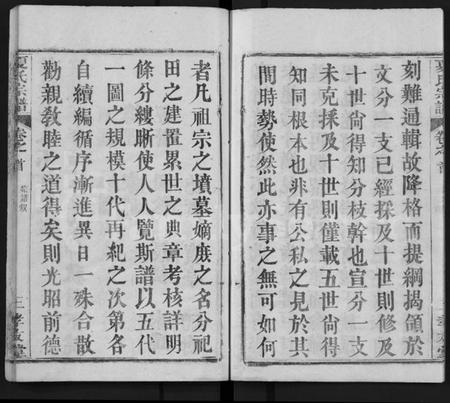 刻難通輯故降格而提綱揭領於
文分一支已經採及十世則修及
十世尚得知分枝幹也宣分一支
未克採及十世則僅載五世尚得
知同根本也非有公私之見於其
間時勢使然此亦事之無可如何
者凡祖宗之墳墓嫡庶之名分祀
田之建置累世之典章考核詳明
條分縷晰使人人覽斯譜以五代
一圖之規模十代再紀之次第各
自續編循序漸進異日一殊合散
勸親敎睦之道得矣則光昭前德
夏氏宗譜
卷之首
三
孝友堂